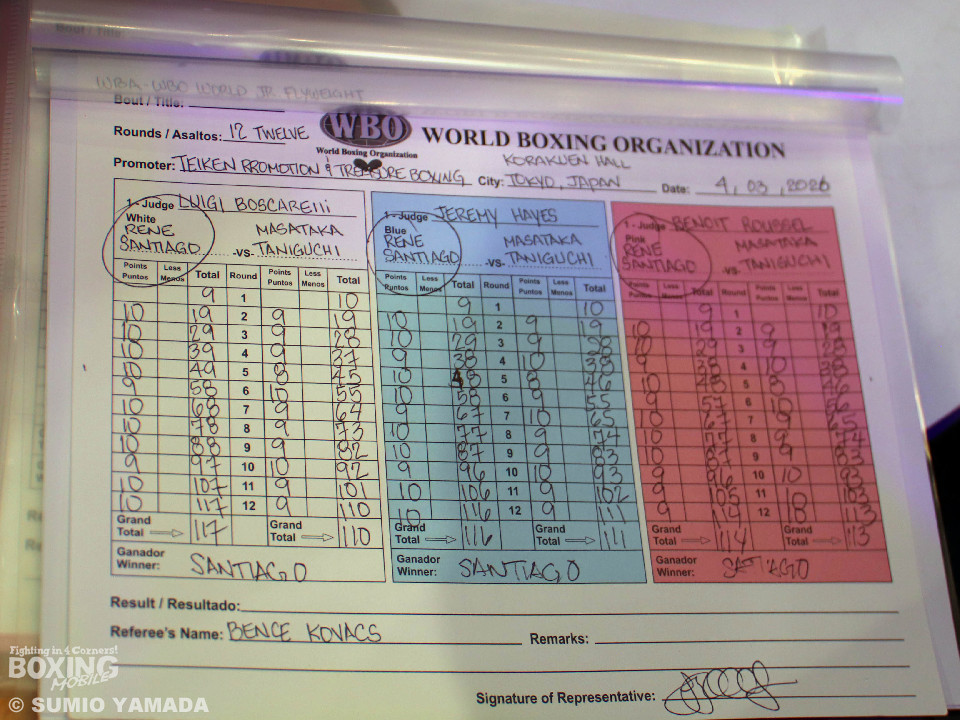 WBA-WBO WORLD JR. FLYWEIGHT
Bout / Title:
Rounds / Asaltos: 12 TWELVE
WBO
World Boxing Organization
WORLD BOXING ORGANIZATION
KORAKUEN HALL
Promoter: TEIKEN PROMOTION & TREASURE BOXING City: TOKYO, JAPAN Date: 4, 03, 2026
1 - Judge LUIGI BOSCARElli 1 - Judge JEREMY HAYES 1 - Judge BENOIT ROUSSEL
White Blue Pink
RENE MASATAKA RENE MASATAKA RENE MASATAKA
SANTIAGO -vs- TANIGUCHI SANTIAGO -vs- TANIGUCHI SANTIAGO -vs- TANIGUCHI
Points Less Total Round Points Less Total Points Less Total Round Points Less Total Points Less Total Round Points Less Total
Puntos Menos Puntos Menos Puntos Menos Puntos Menos Puntos Menos Puntos Menos
9 1 10 9 1 10 9 1 10
10 19 2 9 19 10 19 2 9 19 10 19 2 9 19
10 29 3 9 28 10 29 3 9 28 10 29 3 9 28
10 39 4 9 37 9 38 4 10 38 9 38 4 10 38
10 49 5 8 45 10 48 5 8 46 10 48 5 8 46
9 58 6 10 55 10 58 6 9 55 9 57 6 10 56
10 68 7 9 64 9 67 7 10 65 10 67 7 9 65
10 78 8 9 73 10 77 8 9 74 10 77 8 9 74
10 88 9 9 82 10 87 9 9 83 10 87 9 83
9 97 10 10 92 9 96 10 10 93 9 96 10 10 93
10 107 11 9 101 10 106 11 9 102 9 105 11 10 103
10 117 12 9 110 10 116 12 9 111 9 114 12 113
Grand Total 117 Grand Total 110 Grand Total 116 Grand Total 111 Grand Total 114 Grand Total 113
Ganador Ganador Ganador
Winner: SANTIAGO Winner: SANTIAGO Winner: SANTIAGO
Result / Resultado:
Referee's Name: BENCE KOVACS Remarks:
Signature of Representative:
Fighting in 4 Corners!
BOXING
MOBILE
© SUMIO YAMADA